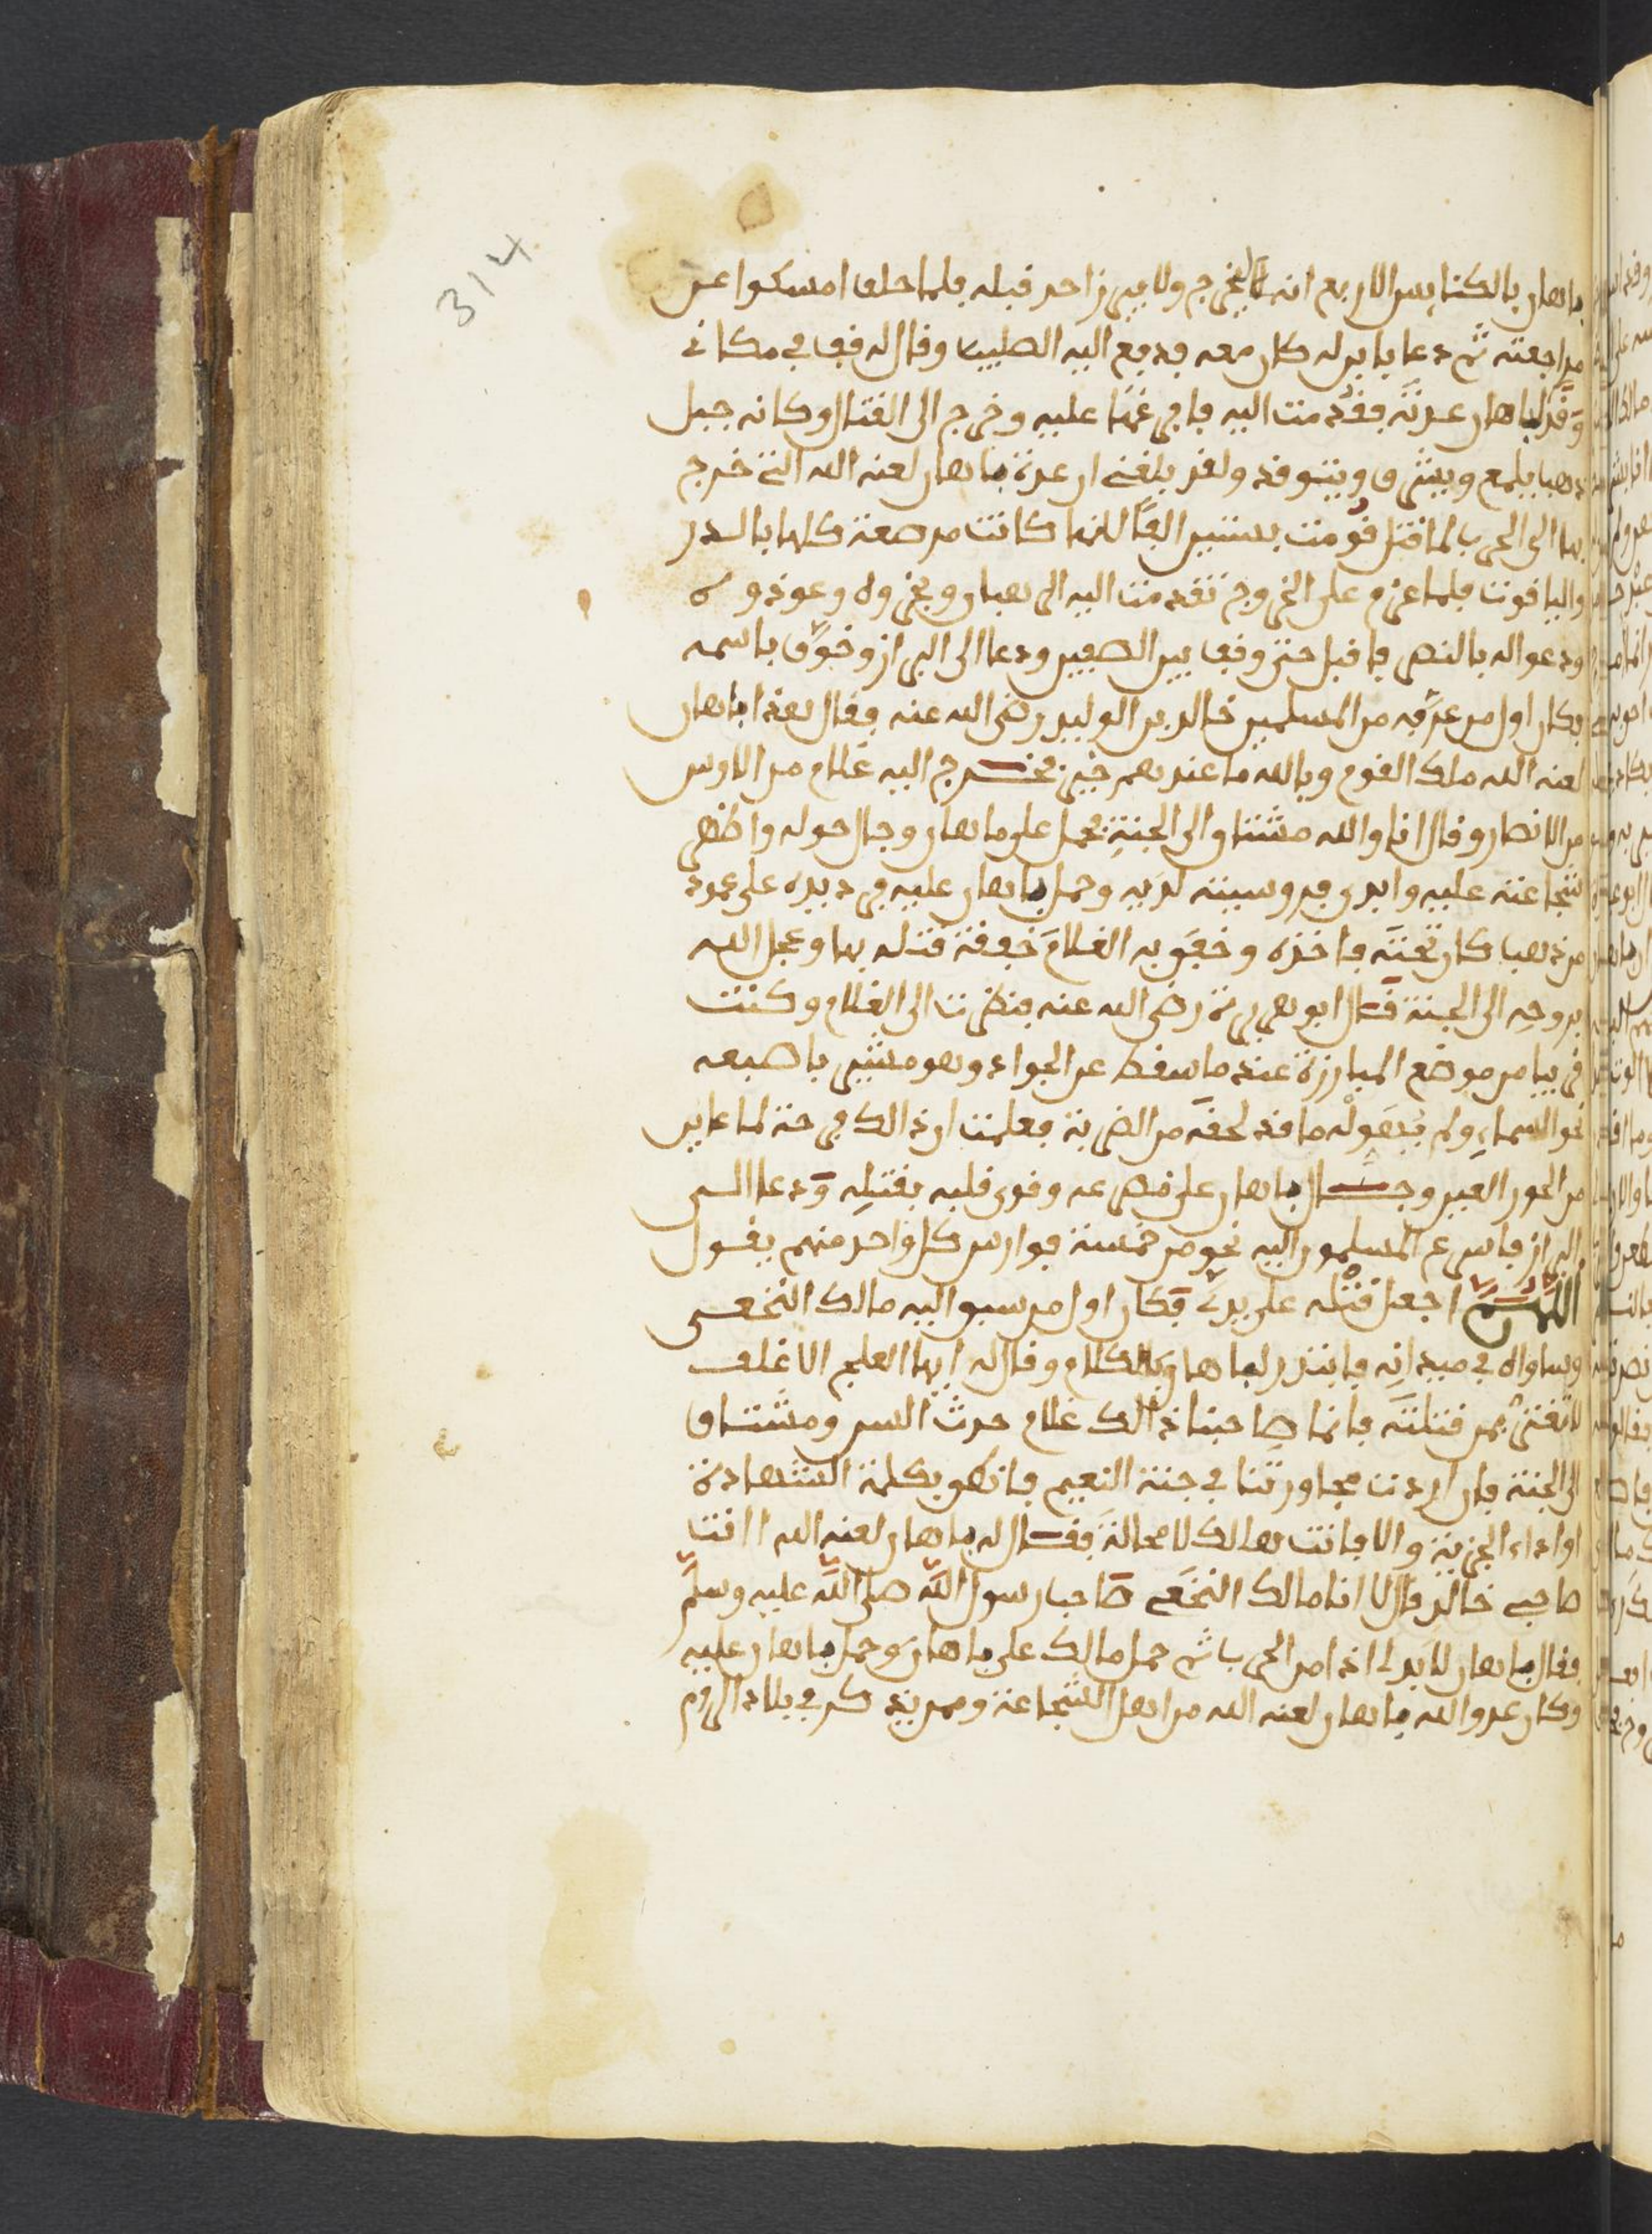 314
باهان بالكنايس الاربع انه لا يخرج ولا يبرز احد قبله فلما حلف امسكوا عن
مراجعته ثم دعا بابن له كان معه فدفع اليه الصليب وقال له قف في مكاني
وقدّم لباهان عدته فقدمت اليه فافرغها عليه وخرج الى القتال وكانه جبل
ذهب يلمع ويشرق ويتوقد ولقد بلغني ان عدة باهان لعنه الله التي خرج
بها الى الحرب لما قتل قومت بستين الفا لانها كانت مرصعة كلها بالدر
والياقوت فلما عزم على الخروج تقدمت اليه الرهبان وبخروه وعوذوه
ودعوا له بالنصر فاقبل حتى وقف بين الصفين ودعا الى البراز وخوّف باسمه
فكان اول من عرفه من المسلمين خالد بن الوليد رضي الله عنه فقال هذا باهان
لعنه الله ملك القوم وبالله ما عندهم خير فخرج اليه غلام من الاوس
من الانصار وقال انا والله مشتاق الى الجنة فحمل على باهان وجال حوله واظهر
شجاعته عليه وابدى فروسيته لديه وحمل باهان عليه في يده على عمود
من ذهب كان تحته فاخذه وخفق به الغلام خفقة قتله بها وعجل الله
بروحه الى الجنة قال ابو هريرة رضي الله عنه فنظرت الى الغلام وكنت
قريبا من موضع المبارزة عندما سقط عن الجواد وهو مشير باصبعه
نحو السماء ولم يهوله ما قد لحقه من الضربة فعلمت ان ذلك فرحة لما عاين
من الحور العين وجال باهان على مصرعه وقوي قلبه بقتله ودعا الى
البراز فاسرع المسلمون اليه نحو من خمسة فوارس كل واحد منهم يقول
اللهم اجعل قتله على يدي فكان اول من سبق اليه مالك النخعي
وساواه في ميدانه فابتدر لباهان بالكلام وقال له ايها العلج الاغلف
لا تغتر بمن قتلته فانما صاحبنا ذلك غلام حدث السن ومشتاق
الى الجنة فان اردت مجاورتنا في جنة النعيم فانطق بكلمة الشهادة
او اداء الجزية والا فانت هالك لا محالة فقال له باهان لعنه الله اانت
صاحبي خالد قال لا انا مالك النخعي صاحب رسول الله صلى الله عليه وسلم
فقال باهان لا بد لي اذا من الحرب ثم حمل مالك على باهان وحمل باهان عليه
وكان عدو الله باهان لعنه الله من اهل الشجاعة وممن يذكر في بلاد الروم